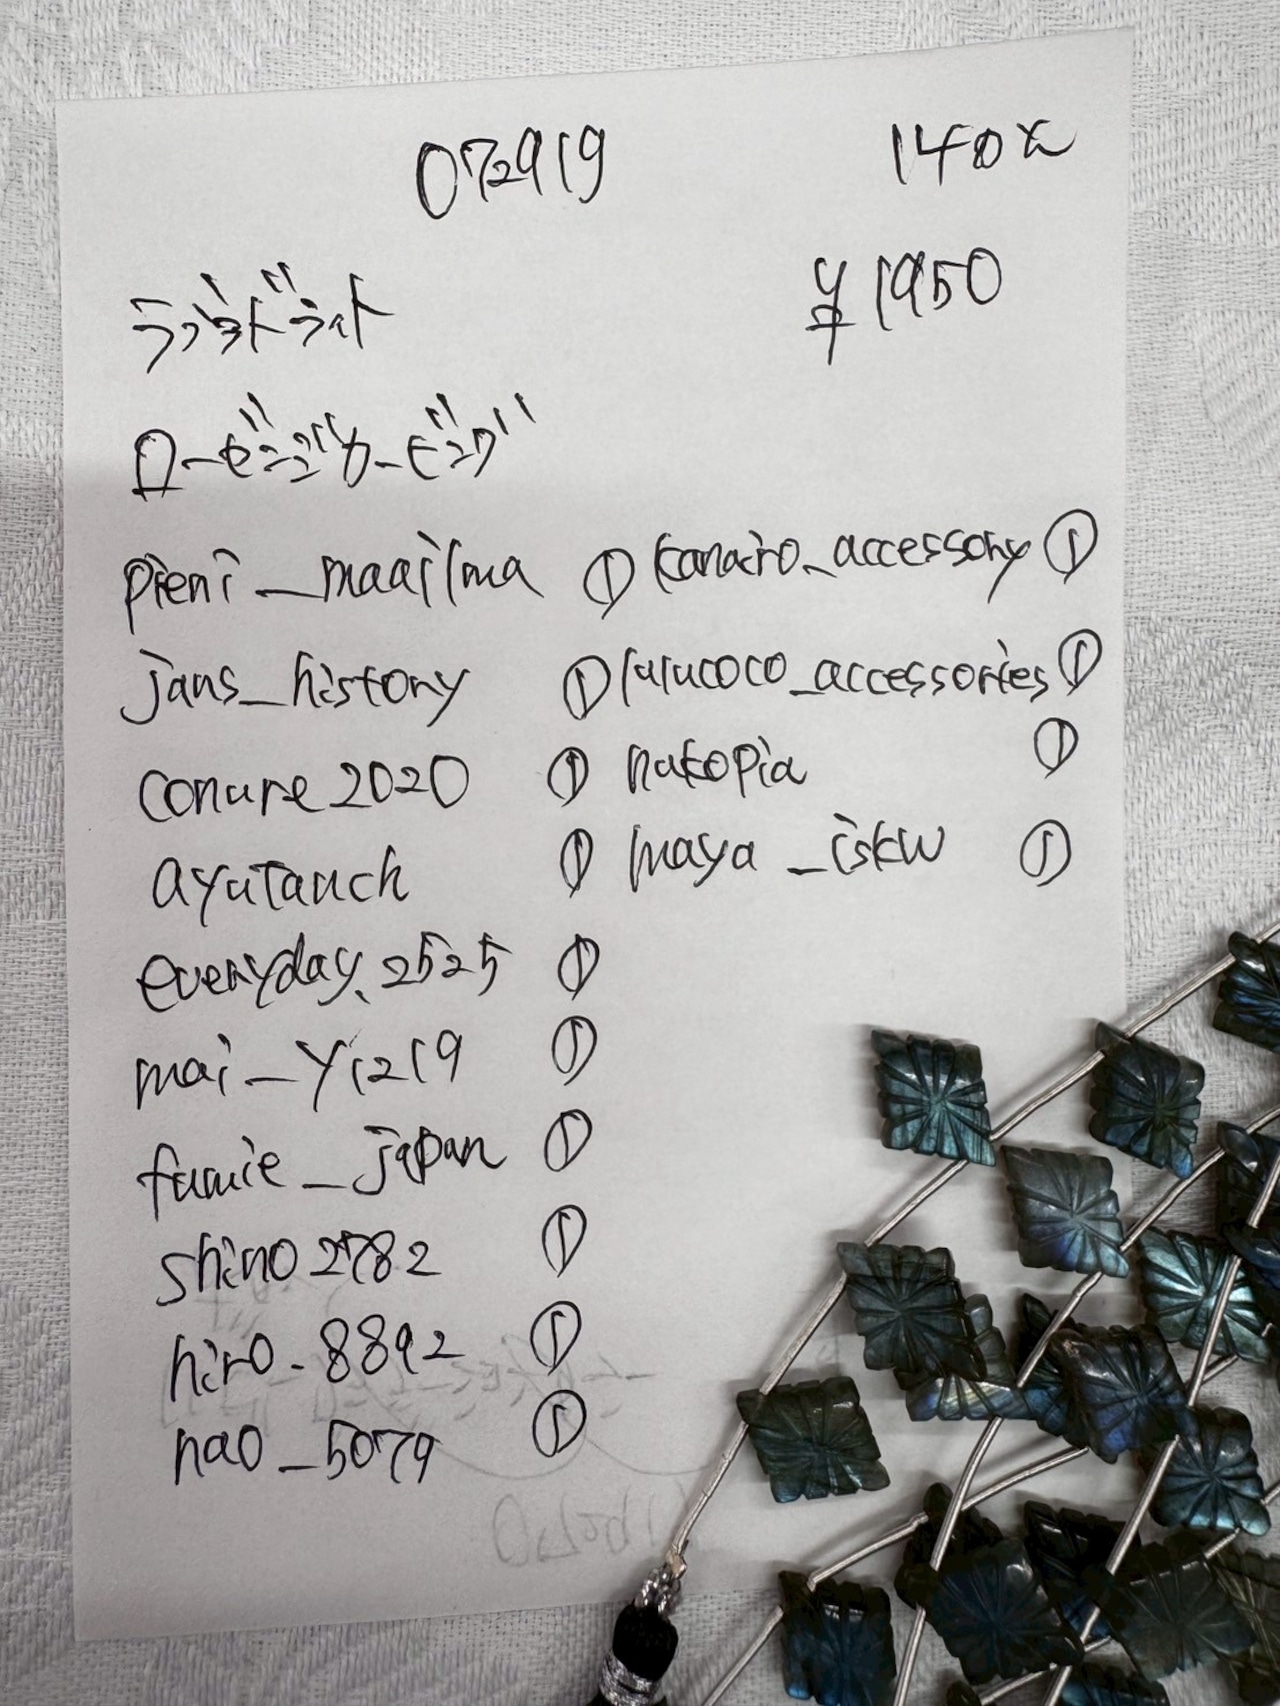 072919
140元
ラブラドライト
¥1950
ローゼンジカービング
pieni_maailma ①
jans_history ①
conure2020 ①
ayutanch ①
everyday.2525 ①
mai_y1219 ①
fumie_japan ①
shino2782 ①
hiro-8892 ①
nao_5079 ①
kanairo_accessory ①
lulucoco_accessories ①
nakopia ①
maya_iskw ①